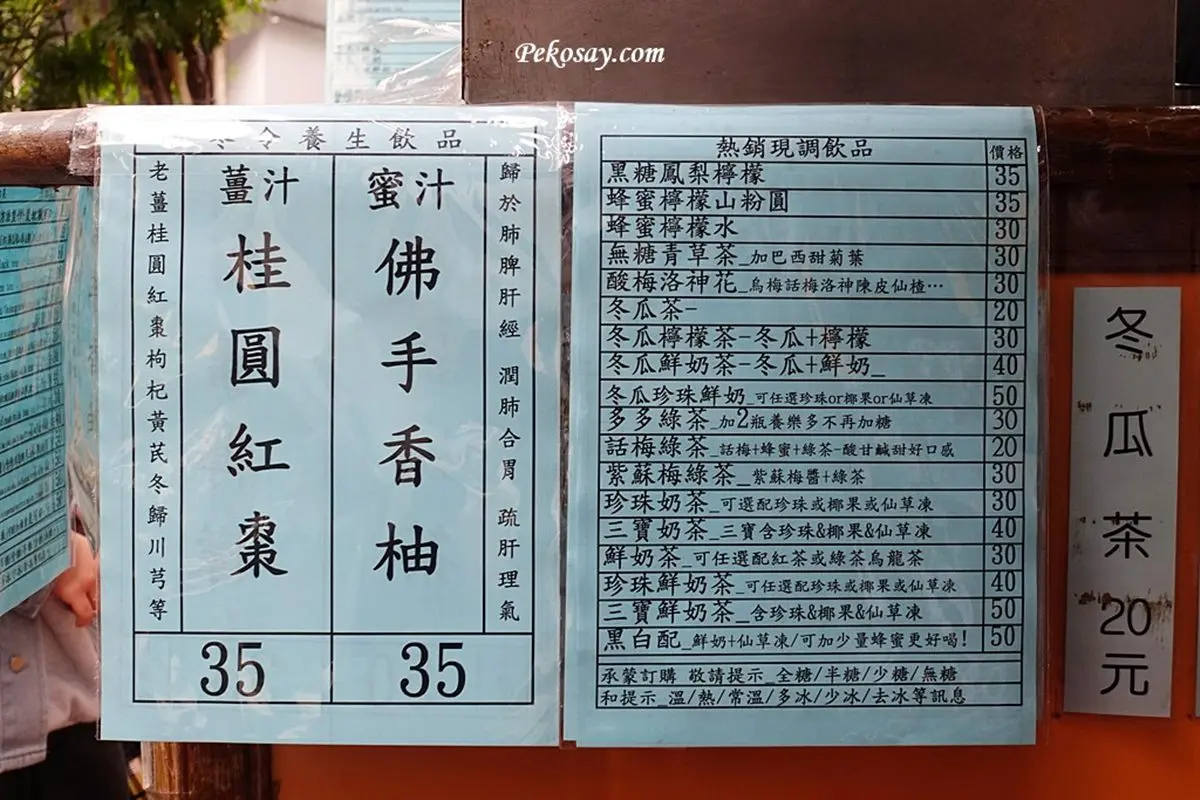 Pekosay.com
冬令養生飲品
老薑桂圓紅棗枸杞黃芪冬歸川芎等
薑汁
桂圓紅棗
35
蜜汁
佛手香柚
35
歸於肺脾肝經 潤肺合胃 疏肝理氣
熱銷現調飲品 價格
黑糖鳳梨檸檬 35
蜂蜜檸檬山粉圓 35
蜂蜜檸檬水 30
無糖青草茶_加巴西甜菊葉 30
酸梅洛神花_烏梅話梅洛神陳皮仙楂… 30
冬瓜茶- 20
冬瓜檸檬茶-冬瓜+檸檬 30
冬瓜鮮奶茶-冬瓜+鮮奶_ 40
冬瓜珍珠鮮奶_可任選珍珠or椰果or仙草凍 50
多多綠茶_加2瓶養樂多不再加糖 30
話梅綠茶_話梅+蜂蜜+綠茶-酸甘鹹甜好口感 20
紫蘇梅綠茶_紫蘇梅醬+綠茶 30
珍珠奶茶_可選配珍珠或椰果或仙草凍 30
三寶奶茶_三寶含珍珠&椰果&仙草凍 40
鮮奶茶_可任選配紅茶或綠茶烏龍茶 30
珍珠鮮奶茶_可任選配珍珠或椰果或仙草凍 40
三寶鮮奶茶_含珍珠&椰果&仙草凍 50
黑白配_鮮奶+仙草凍/可加少量蜂蜜更好喝! 50
承蒙訂購 敬請提示_全糖/半糖/少糖/無糖
和提示_溫/熱/常溫/多冰/少冰/去冰等訊息
冬瓜茶20元